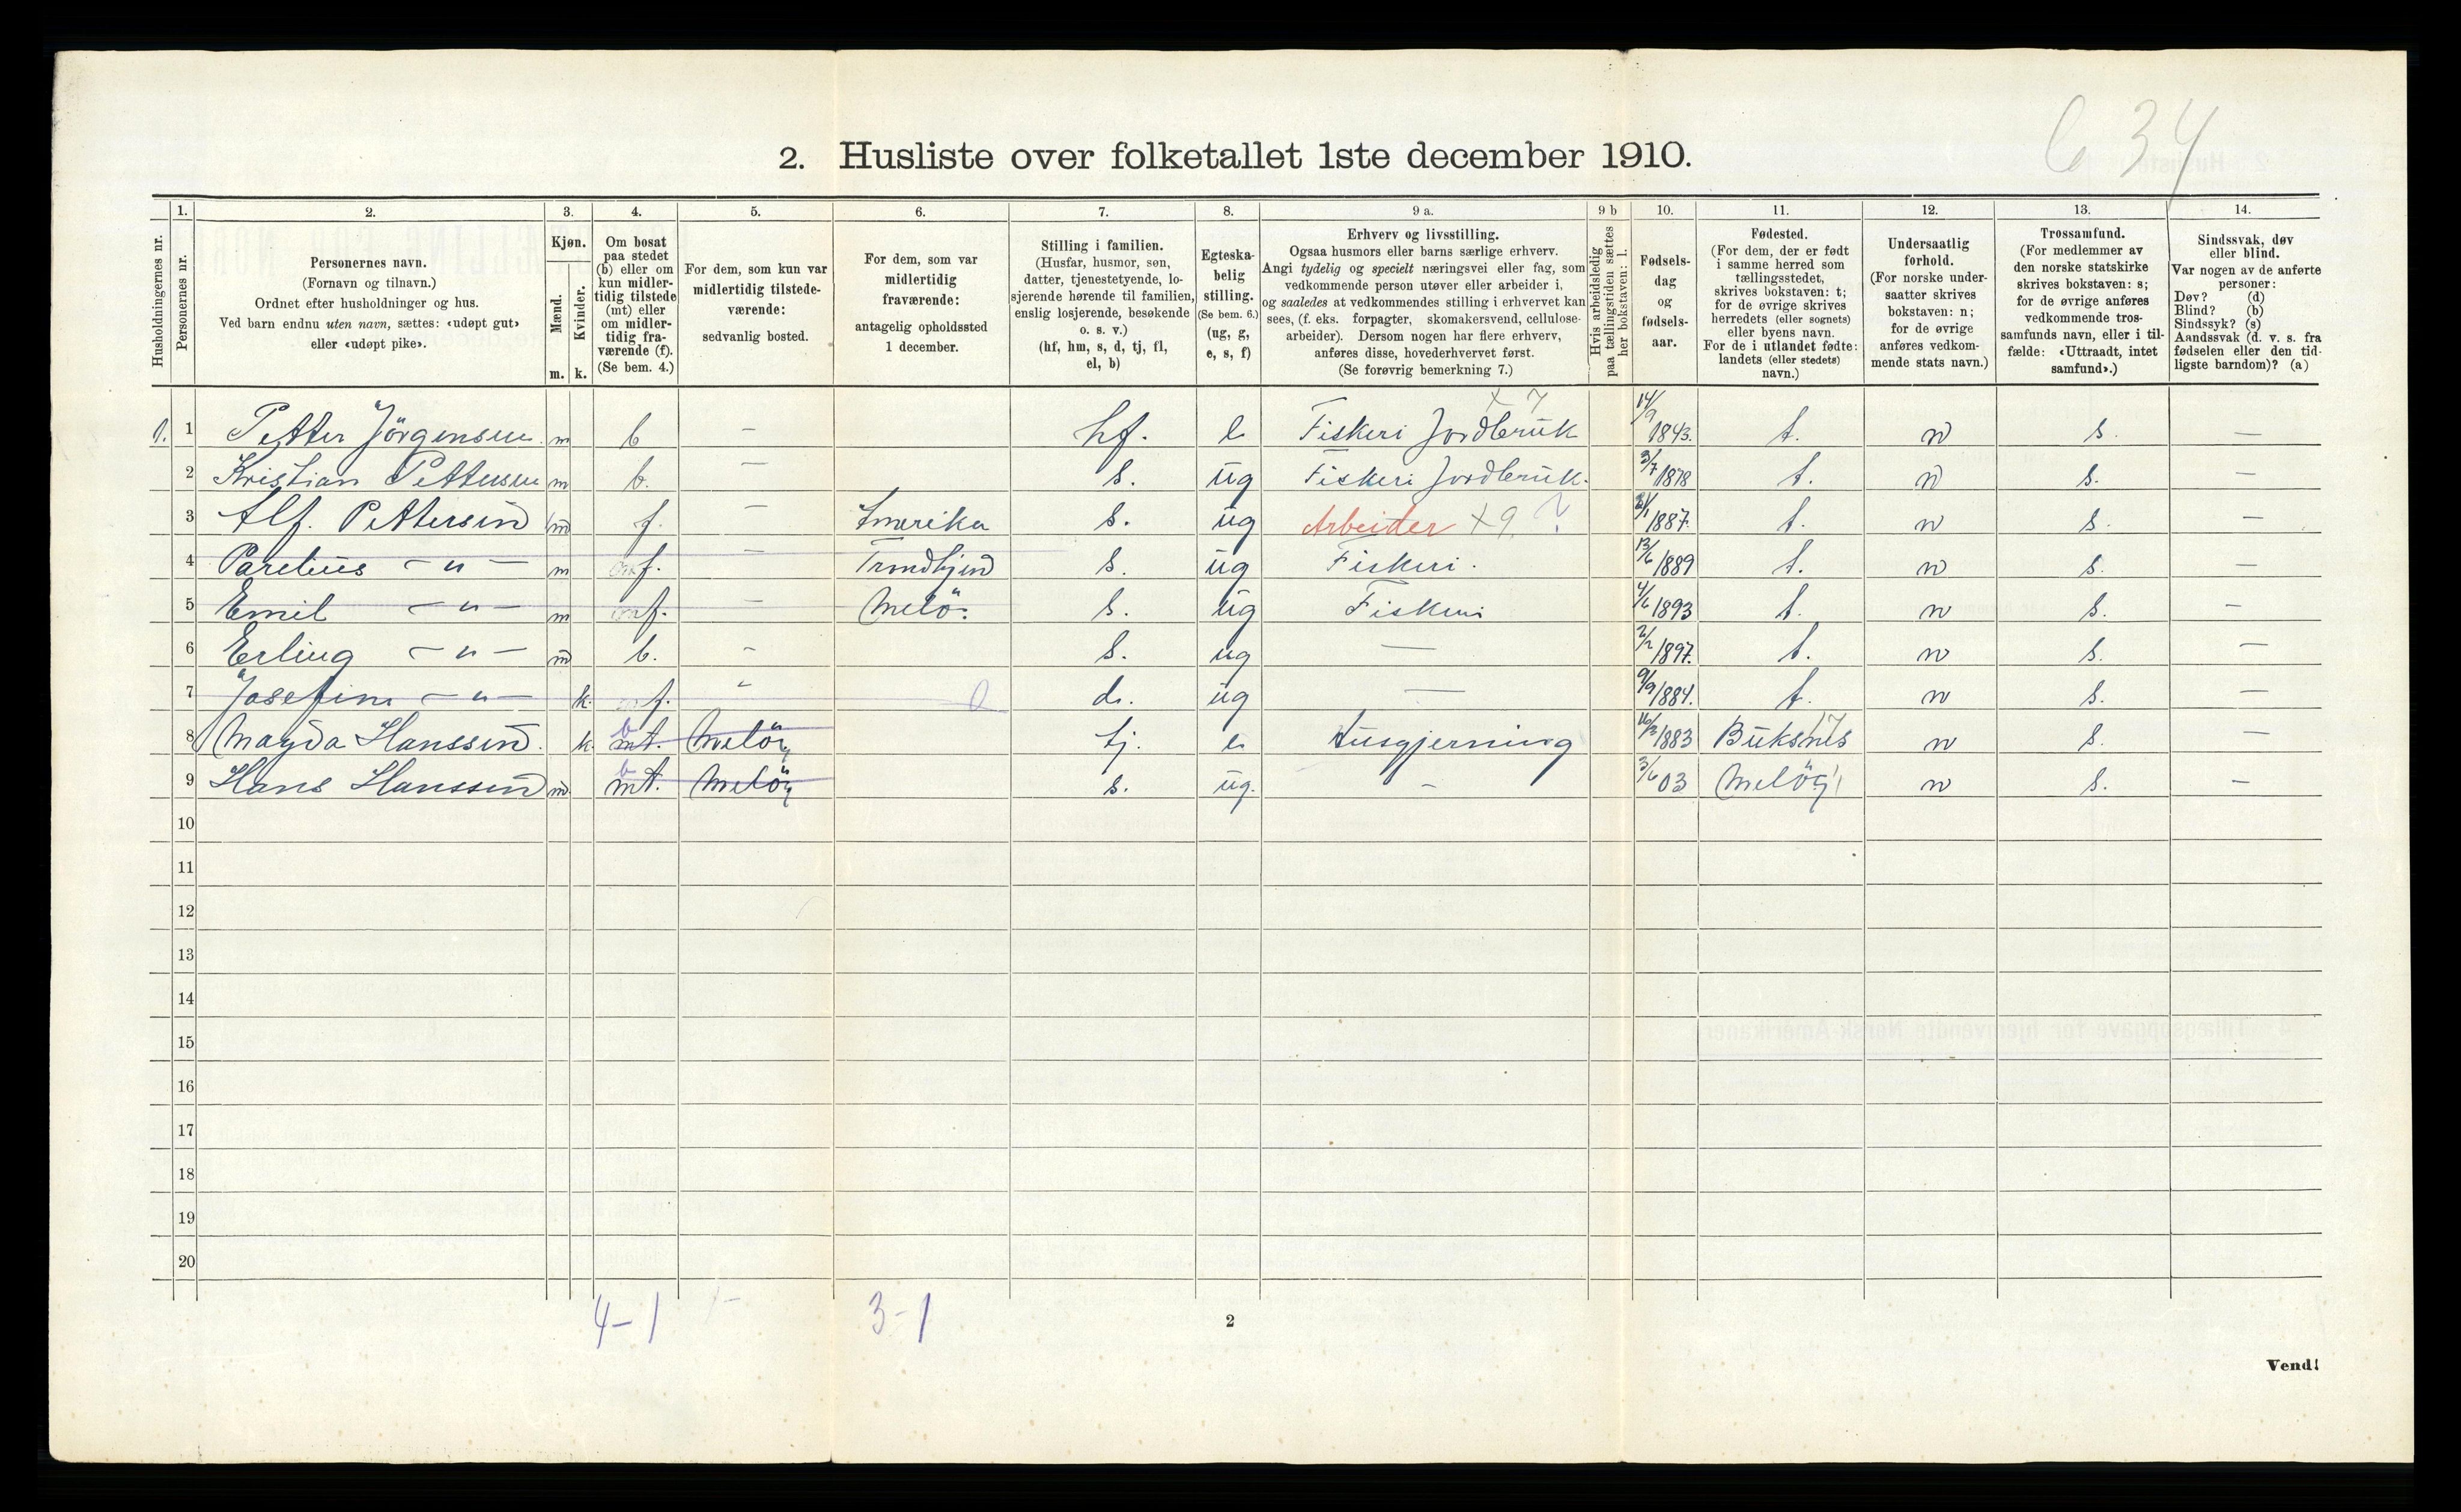 634
2. Husliste over folketallet 1ste december 1910.
Husholdningernes nr.
1. Personernes nr.
2. Personernes navn.
(Fornavn og tilnavn.)
Ordnet efter husholdninger og hus.
Ved barn endnu uten navn, sættes: «udøpt gut»
eller «udøpt pike».
3. Kjøn.
Mænd. Kvinder.
m. k.
4. Om bosat
paa stedet
(b) eller om
kun midler-
tidig tilstede
(mt) eller
om midler-
tidig fra-
værende (f).
(Se bem. 4.)
5. For dem, som kun var
midlertidig tilstede-
værende:
sedvanlig bosted.
6. For dem, som var
midlertidig
fraværende:
antagelig opholdssted
1 december.
7. Stilling i familien.
(Husfar, husmor, søn,
datter, tjenestetyende, lo-
sjerende hørende til familien,
enslig losjerende, besøkende
o. s. v.)
(hf, hm, s, d, tj, fl,
el, b)
8. Egteska-
belig
stilling.
(Se bem. 6.)
(ug, g,
e, s, f)
9 a. Erhverv og livsstilling.
Ogsaa husmors eller barns særlige erhverv.
Angi tydelig og specielt næringsvei eller fag, som
vedkommende person utøver eller arbeider i,
og saaledes at vedkommendes stilling i erhvervet kan
sees, (f. eks. forpagter, skomakersvend, cellulose-
arbeider). Dersom nogen har flere erhverv,
anføres disse, hovederhvervet først.
(Se forøvrig bemerkning 7.)
9 b Hvis arbeidsledig
paa tællingstiden sættes
her bokstaven: l.
10. Fødsels-
dag
og
fødsels-
aar.
11. Fødested.
(For dem, der er født
i samme herred som
tællingsstedet,
skrives bokstaven: t;
for de øvrige skrives
herredets (eller sognets)
eller byens navn.
For de i utlandet fødte:
landets (eller stedets)
navn.)
12. Undersaatlig
forhold.
(For norske under-
saatter skrives
bokstaven: n;
for de øvrige
anføres vedkom-
mende stats navn.)
13. Trossamfund.
(For medlemmer av
den norske statskirke
skrives bokstaven: s;
for de øvrige anføres
vedkommende tros-
samfunds navn, eller i til-
fælde: «Uttraadt, intet
samfund».)
14. Sindssvak, døv
eller blind.
Var nogen av de anførte
personer:
Døv? (d)
Blind? (b)
Sindssyk? (s)
Aandssvak (d. v. s. fra
fødselen eller den tid-
ligste barndom)? (a)
x 7
1. 1 Petter Jörgensen m b — hf. e Fiskeri Jordbruk 14/9 1843. t. n s. —
2 Kristian Pettersen m b. — s. ug Fiskeri Jordbruk. 3/7 1878 t. n s. —
3 Alf. Pettersen m f. — Amerika s. ug Arbeider x 9 ? 1887. t. n s. —
4 Parelius — " — m f. — Trondhjem s. ug Fiskeri. 13/6 1889 t. n s. —
5 Emil — " — m f. — Melö. s. ug Fiskeri 4/6 1893 t. n s. —
6 Erling — " — m b. - s. ug — 2/2 1897. t. n s. —
7 Josefine — " — k. f. " d. ug — 9/9 1884. t. n s. —
8 Magda Hanssen. k. b mt. Melöy tj. e Husgjerning 1883 Buksnes 17 n s. —
9 Hans Hanssen m b mt. Melöy s. ug. - 3/6 03 Melöy n s. —
10
11
12
13
14
15
16
17
18
19
20
4-1 3-1
2
Vend!